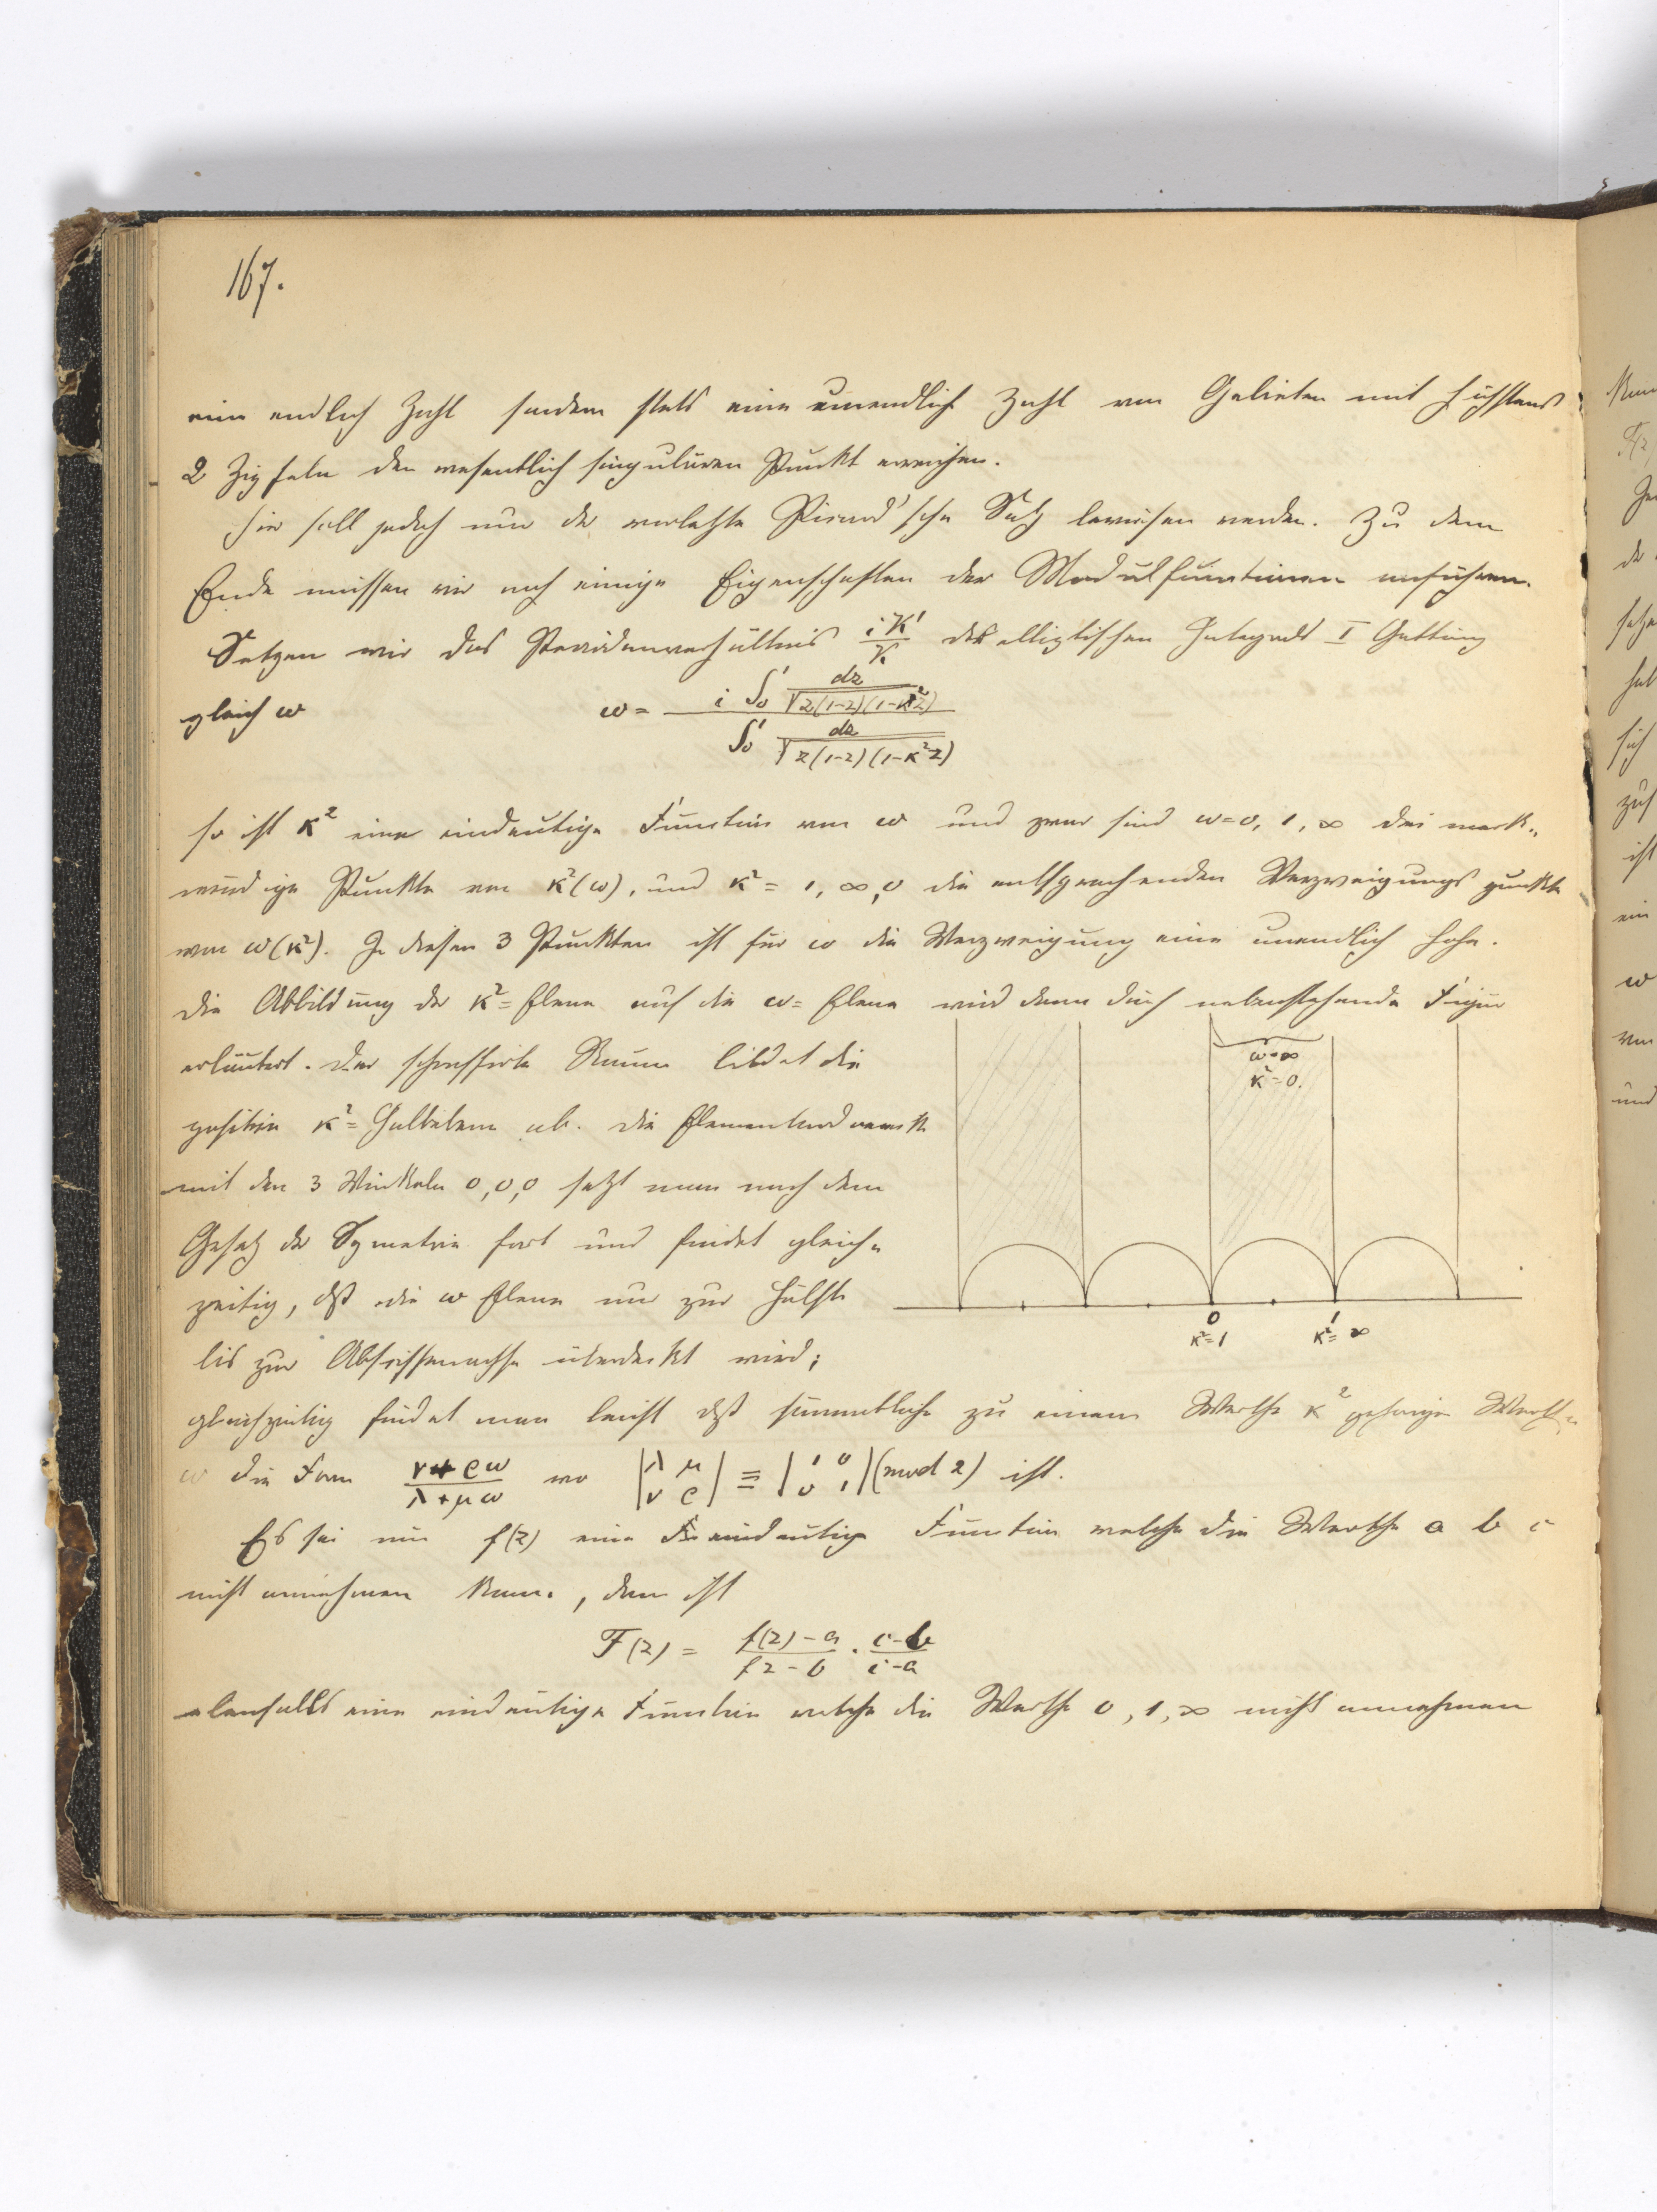 167.
eine endlich Zahl sondern stets eine unendliche Zahl von Gebieten mit höchstens
2 Zipfeln den wesentlich singulären Punkt erreichen.
Hier soll jedoch nur der vorletzte Picard'sche Satz bewiesen werden. Zu dem
Ende müssen wir noch einige Eigenschaften der Modulfunctionen anführen.
Setzen wir das Periodenverhältnis iK'/K des elliptischen Integrals I Gattung
gleich ω ω = i ∫₀¹ dz/√z(1-z)(1-k'²z) / ∫₀¹ dz/√z(1-z)(1-κ²z)
so ist κ² eine eindeutige Function von ω und zwar sind ω=0, 1, ∞ drei merk=
würdige Punkte von κ²(ω), und κ² = 1, ∞, 0 die entsprechenden Verzweigungspunkte
von ω(κ²). In diesen 3 Punkten ist für ω die Verzweigung eine unendlich hohe.
Die Abbildung der κ²=Ebene auf die ω=Ebene wird dann durch nebenstehende Figur
erläutert. Der schraffirte Raum bildet die
positive κ²=Halbebene ab. Die Elementardreiecke
mit den 3 Winkeln 0,0,0 setzt man nach dem
Gesetz der Symetrie fort und findet gleich=
zeitig, dß die ω Ebene nur zur Hälfte
bis zur Abscissenachse überdeckt wird;
ω=∞
κ²=0.
0
κ²=1
1
κ²=∞
gleichzeitig findet man leicht dß sämmtliche zu einem Werthe κ² gehörige Werthe
ω die Form ν+ρω/λ+μω wo |λ μ ν ρ| ≡ |1 0 0 1| (mod 2) ist.
Es sei nun f(z) eine eindeutige Function welche die Werthe a b c
nicht annehmen kann, dann ist
F(z) = f(z)-a/fz-b . c-b/c-a
ebenfalls eine eindeutige Function welche die Werthe 0, 1, ∞ nicht annehmen